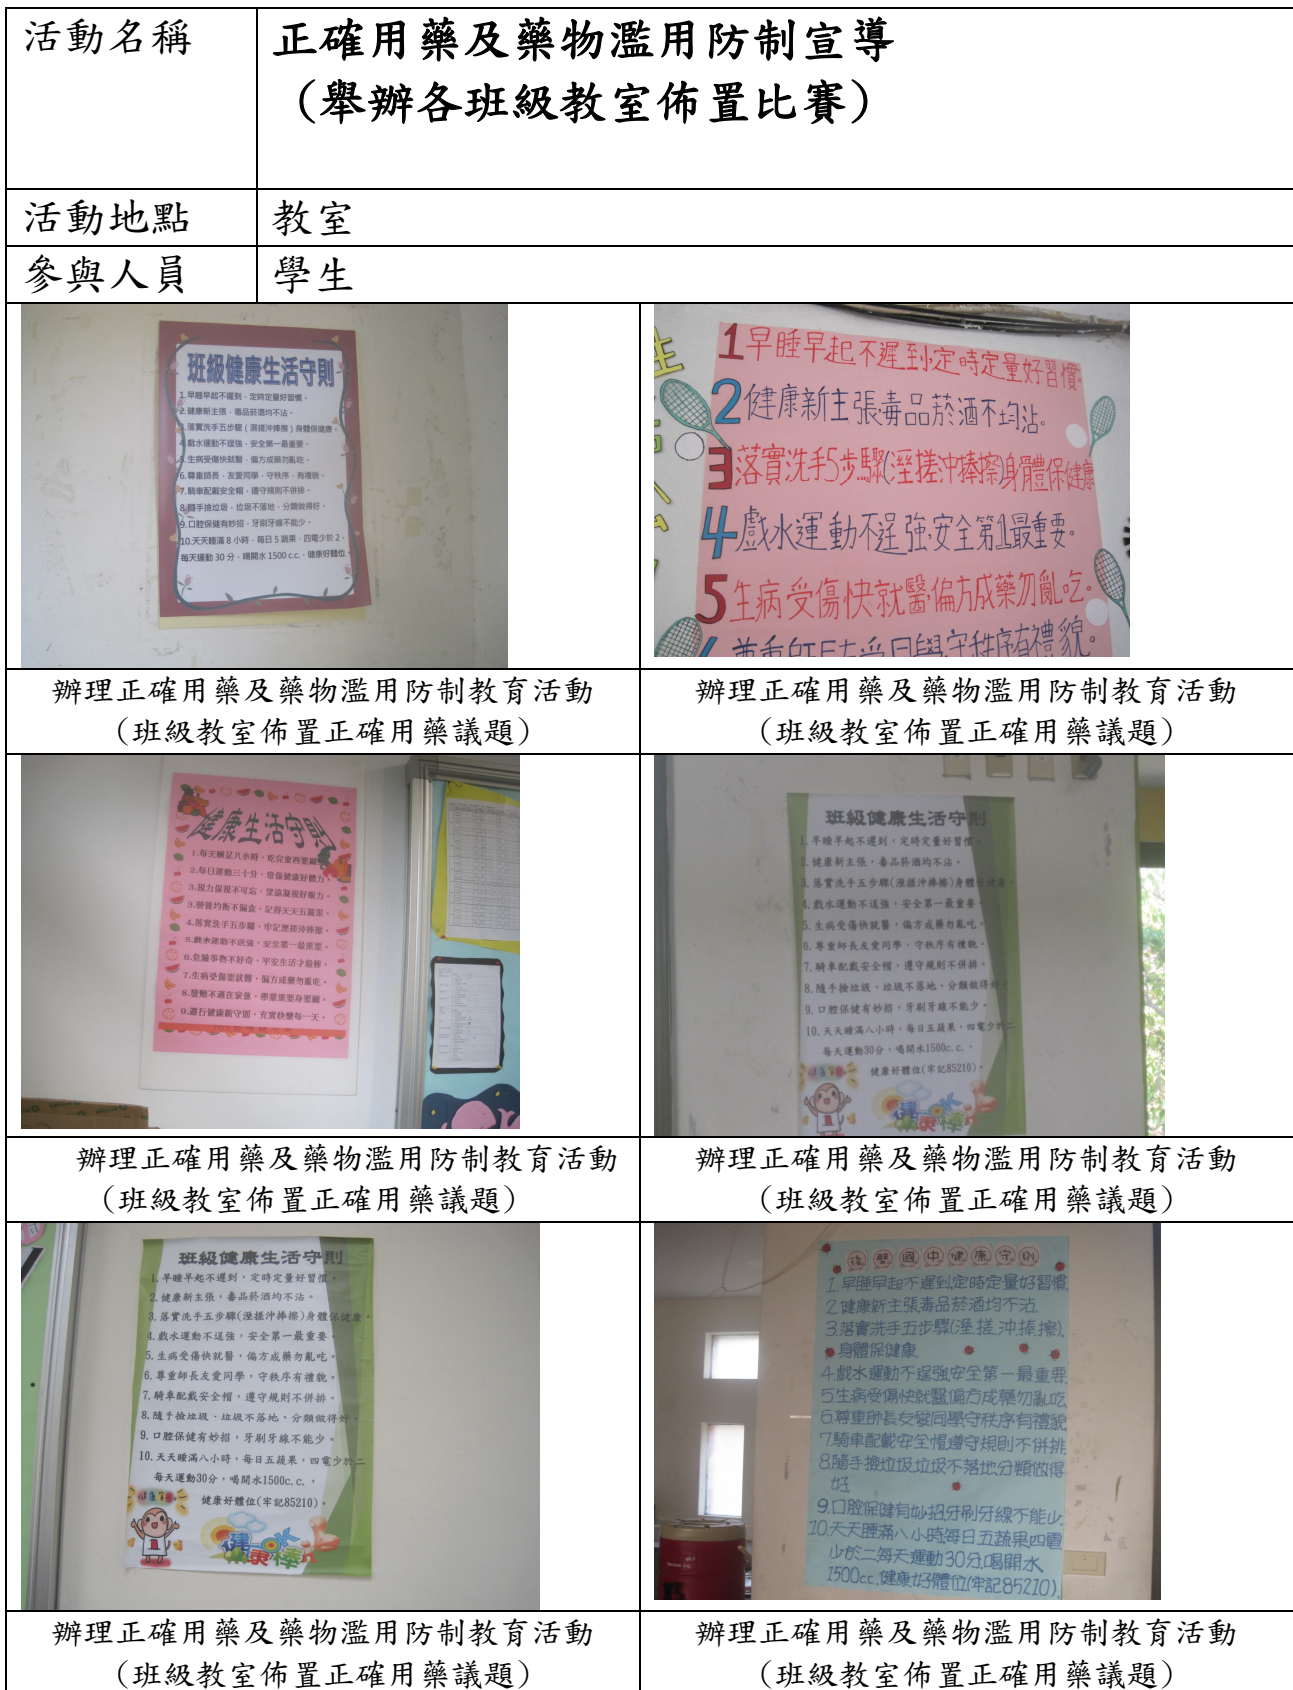 活動名稱
正確用藥及藥物濫用防制宣導
（舉辦各班級教室佈置比賽）
活動地點
教室
參與人員
學生
班級健康生活守則
1.早睡早起不遲到，定時定量好習慣。
2.健康新主張，毒品菸酒均不沾。
3.落實洗手五步驟（濕搓沖捧擦）身體保健康。
4.戲水運動不逞強，安全第一最重要。
5.生病受傷快就醫，偏方成藥勿亂吃。
6.尊重師長、友愛同學，守秩序，有禮貌。
7.騎車配戴安全帽，遵守規則不併排。
8.隨手撿垃圾，垃圾不落地，分類做得好。
9.口腔保健有妙招，牙刷牙線不能少。
10.天天睡滿 8 小時，每日 5 蔬果，四電少於 2，
每天運動 30 分，喝開水 1500 c.c.，健康好體位。
1早睡早起不遲到,定時定量好習慣。
2健康新主張毒品菸酒不均沾。
3落實洗手5步驟(溼搓沖捧擦)身體保健康
4戲水運動不逞強,安全第1最重要。
5生病受傷快就醫,偏方成藥勿亂吃。
尊重師長友愛同學守秩序有禮貌。
辦理正確用藥及藥物濫用防制教育活動
（班級教室佈置正確用藥議題）
辦理正確用藥及藥物濫用防制教育活動
（班級教室佈置正確用藥議題）
健康生活守則
1.每天睡足八小時，吃完東西要刷
2.每日運動三十分，常保健康好體力。
3.視力保視不可忘，望遠凝視好眼力。
3.營養均衡不偏食，記得天天五蔬果。
4.落實洗手五步驟，牢記溼搓沖捧擦。
5.戲水運動不逞強，安全第一最重要。
6.危險事物不好奇，平安生活才最棒。
7.生病受傷要就醫，偏方成藥勿亂吃。
8.發燒不適在家休，學業重要身要顧。
9.遵行健康新守則，充實快樂每一天。
班級健康生活守則
1.早睡早起不遲到，定時定量好習慣。
2.健康新主張，毒品菸酒均不沾。
3.落實洗手五步驟(溼搓沖捧擦)身體保健康。
4.戲水運動不逞強，安全第一最重要。
5.生病受傷快就醫，偏方成藥勿亂吃。
6.尊重師長友愛同學，守秩序有禮貌。
7.騎車配戴安全帽，遵守規則不併排。
8.隨手撿垃圾、垃圾不落地、分類做得好。
9.口腔保健有妙招，牙刷牙線不能少。
10.天天睡滿八小時，每日五蔬果，四電少於二
每天運動30分，喝開水1500c.c.，
健康好體位(牢記85210)。
健康OK棒
辦理正確用藥及藥物濫用防制教育活動
（班級教室佈置正確用藥議題）
辦理正確用藥及藥物濫用防制教育活動
（班級教室佈置正確用藥議題）
班級健康生活守則
1.早睡早起不遲到，定時定量好習慣。
2.健康新主張，毒品菸酒均不沾。
3.落實洗手五步驟(溼搓沖捧擦)身體保健康。
4.戲水運動不逞強，安全第一最重要。
5.生病受傷快就醫，偏方成藥勿亂吃。
6.尊重師長友愛同學，守秩序有禮貌。
7.騎車配戴安全帽，遵守規則不併排。
8.隨手撿垃圾、垃圾不落地、分類做得好。
9.口腔保健有妙招，牙刷牙線不能少。
10.天天睡滿八小時，每日五蔬果，四電少於二
每天運動30分，喝開水1500c.c.，
健康好體位(牢記85210)。
健康OK棒
後壁國中健康守則
1.早睡早起不遲到定時定量好習慣
2.健康新主張毒品菸酒均不沾
3.落實洗手五步驟(溼.搓.沖.捧.擦).
身體保健康
4.戲水運動不逞強安全第一最重要
5.生病受傷快就醫偏方成藥勿亂吃
6.尊重師長友愛同學守秩序有禮貌
7.騎車配戴安全帽遵守規則不併排
8.隨手撿垃圾垃圾不落地分類做得
好
9.口腔保健有妙招牙刷牙線不能少
10.天天睡滿八小時每日五蔬果四電
少於二每天運動30分.喝開水
1500c.c.,健康好體位(牢記85210).
辦理正確用藥及藥物濫用防制教育活動
（班級教室佈置正確用藥議題）
辦理正確用藥及藥物濫用防制教育活動
（班級教室佈置正確用藥議題）